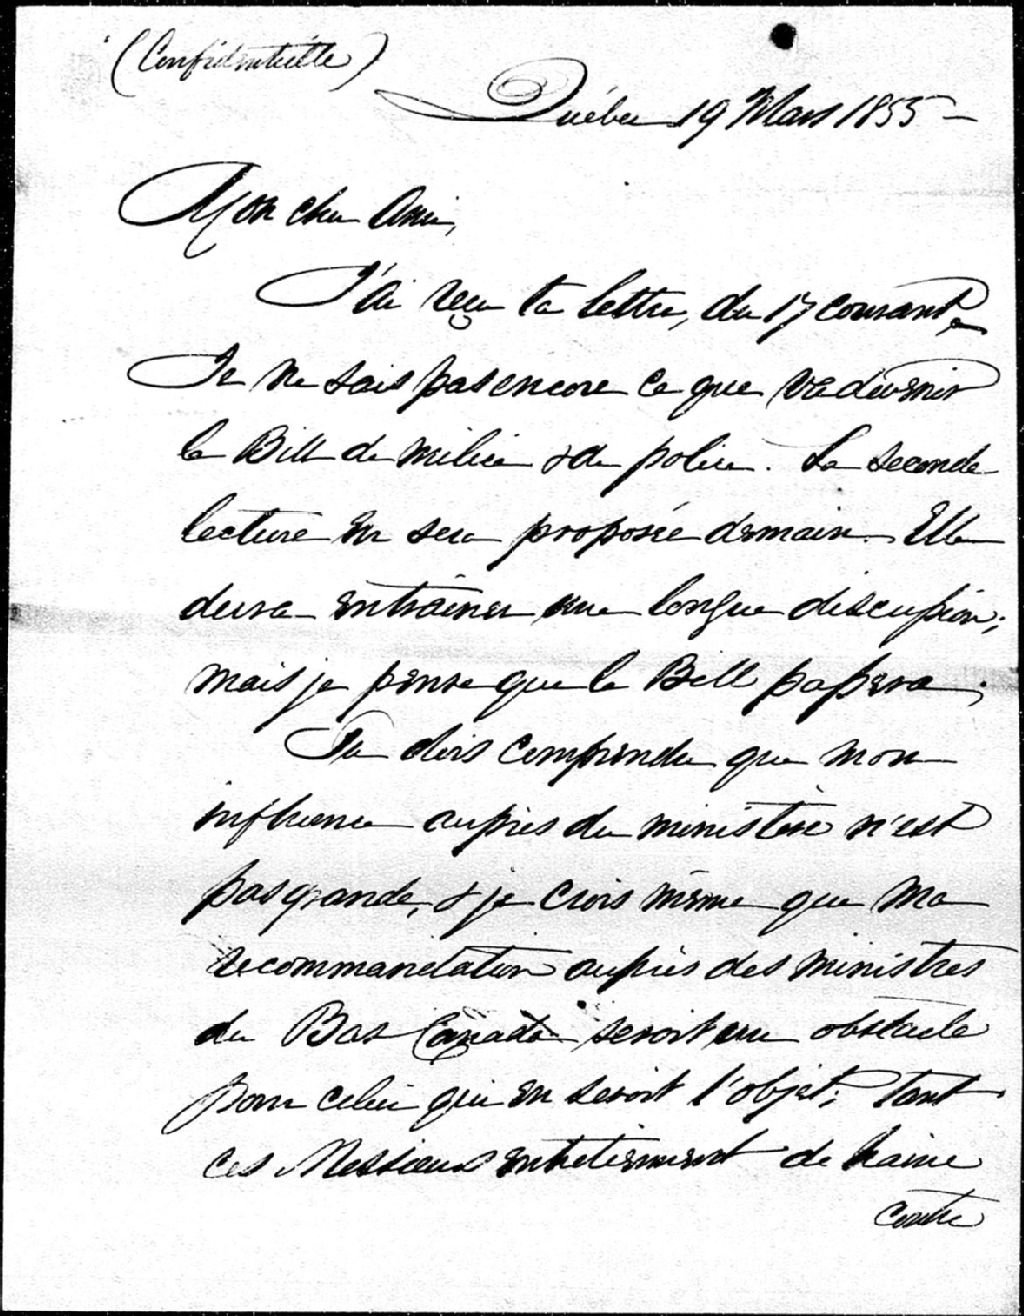 (Confidentielle)
Québec 19 Mars 1855 –
Mon cher Ami,
J'ai reçu ta lettre, du 17 courant.
Je ne sais pas encore ce que va devenir
le Bill de milice & de police. La seconde
lecture en sera proposée demain. Elle
devra entraîner une longue discussion;
mais je pense que le Bill passera.
Tu dois comprendre que mon
influence auprès du ministère n'est
pas grande, & je crois même que ma
recommandation auprès des ministres
du Bas Canada seroit un obstacle
pour celui qui en seroit l'objet; tant
ces Messieurs entretiennent de haine
contre